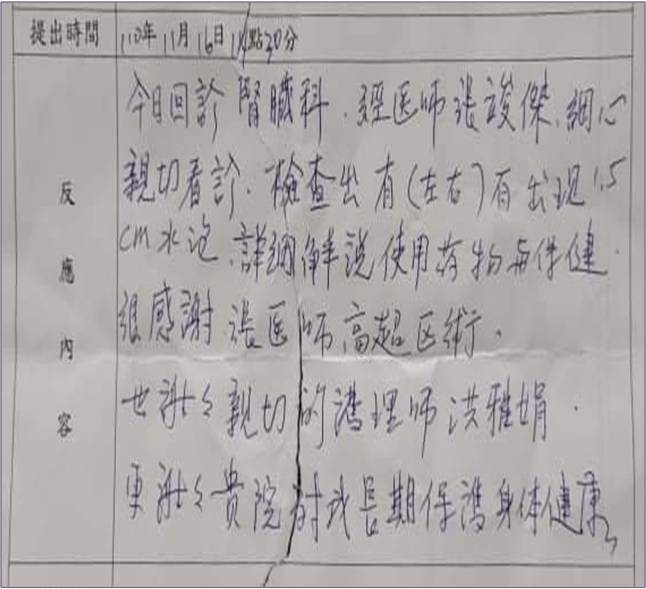 提出時間 110年 11月 16日 14點30分
反應內容
今日回診腎臟科.經医师張竣傑.細心
親切看診.檢查出有(左右)有出现1.5
cm水泡.詳細解说使用药物与保健.
很感謝.張医师高超医術.
也謝々親切的護理师洪雅娟.
更謝々貴院对我長期保護身体健康